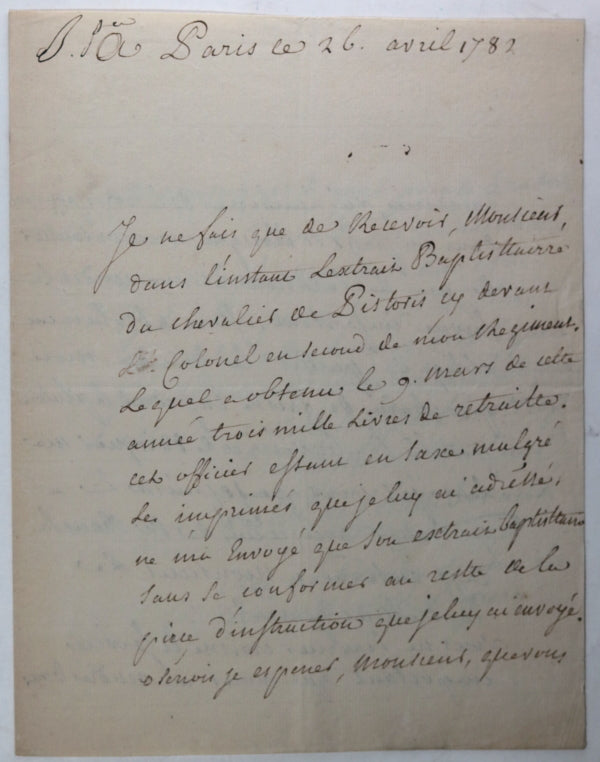 à Paris ce 26. avril 1782
Je ne fais que de Recevoir, Monsieur,
dans l'instant L'extrait Baptisttairre
du chevalier de Pistoris cy devant
Lt Colonel en second de mon Regiment.
Lequel a obtenu le 9. mars de cette
année trois mille Livres de retraitte.
cet officier estant en Saxe malgré
les imprimés que je luy ai adréssé,
ne m'a Envoyé que son extrait baptisttaire
sans se conformer au reste de la
piece d'instruction que je luy ai envoyé.
oserois je esperer, Monsieur, que vous